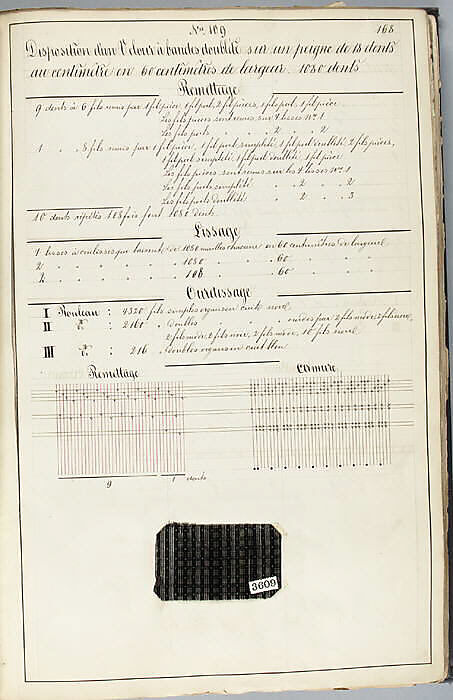 No. 109
168
Disposition d'un Velours à bandes doublté sur un peigne de 18 dents
au centimètre en 60 centimètres de largeur. 1080 dents
Remettage
9 dents à 6 fils remis par 1 fil pièce, 1 fil poil, 2 fils pièces, 1 fil poil, 1 fil pièce.
Les fils pièces sont remis sur 4 lisses No. 1
Les fils poils . . . 2 . . 2
1 . . 8 fils remis par 1 fil pièce, 1 fil poil simpleté, 1 fil poil doublté, 2 fils pièces,
1 fil poil simpleté, 1 fil poil doublté, 1 fil pièce
Les fils pièces sont remis sur les 4 lisses No. 1
Les fils poils simpleté . . 2 . . 2
Les fils poils doublté . . 2 . . 3
10 dents répétés 108 fois font 1080 dents
Lissage
lisses à coulisses par 1080 mailles chacune en 60 centimètres de largeur
2 . . . 1080 . . 60
2 . . . 108 . . 60
Ourdissage
I Rouleau : 4320 fils simples organsin cuit noir.
II d° : 2160 . doubles . . ourdis par 2 fils noir,
2 fils 2 fils noir, 2 fils 10 fils noir.
III d° : 216 . doubles organsin cuit bleu
Remettage
Armure
9 1 dents
3609